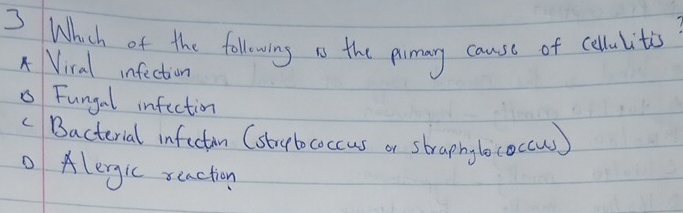 3 Which of the following is the primary cause of cellulitis?
A Viral infection
B Fungal infection
C Bacterial infection (streptococcus or straphylococcus)
D Alergic reaction